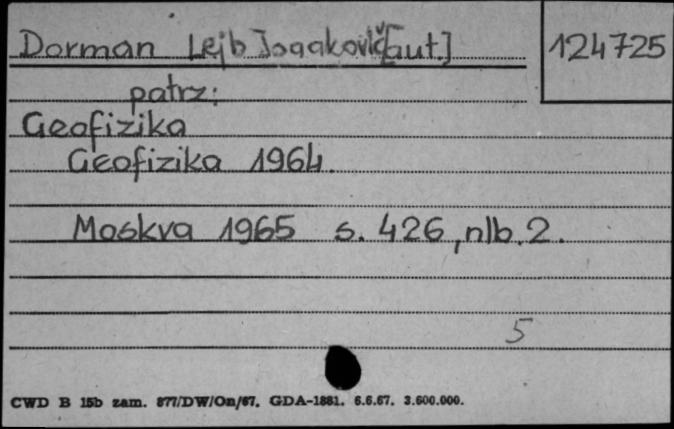 Dorman Lejb Isaakovič [aut.]
124725
patrz:
Geofizika
Geofizika 1964.
Moskva 1965 s. 426, nlb. 2.
5
CWD B 15b zam. 877/DW/On/67. GDA-1881. 6.6.67. 3.600.000.